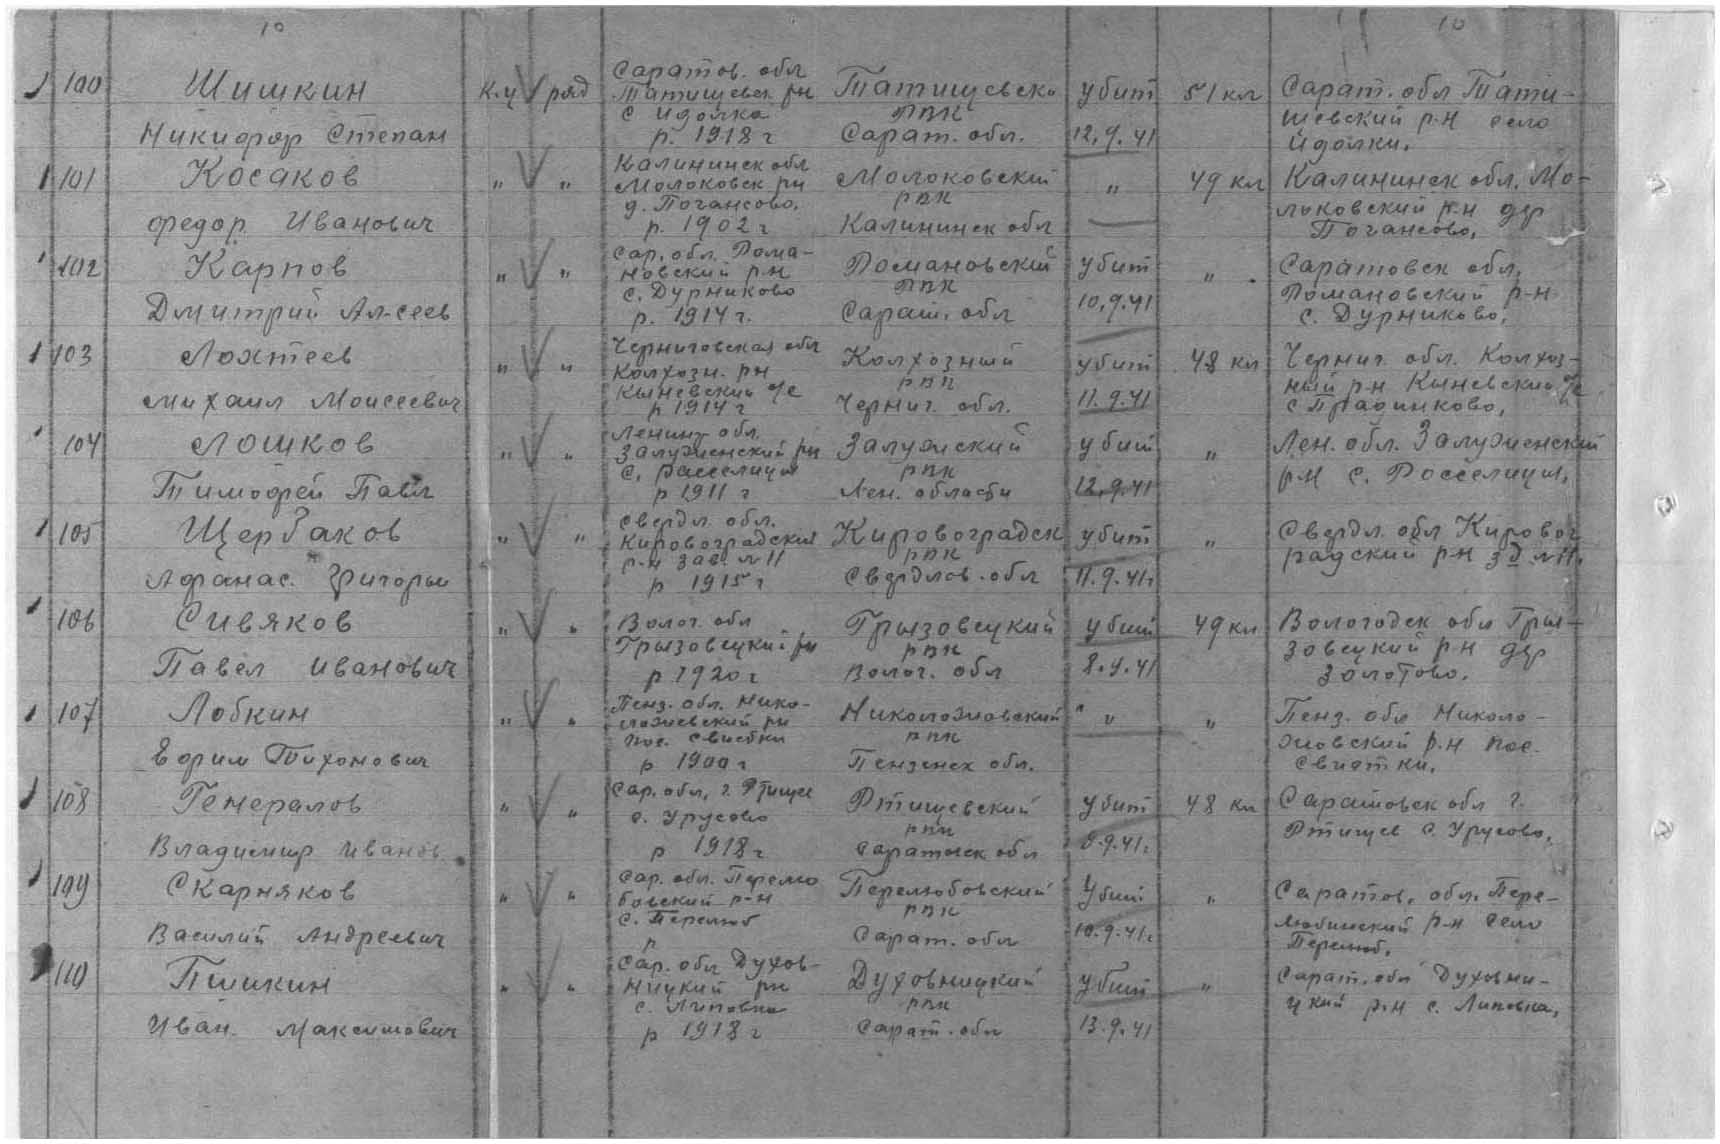 10
10
100 Шишкин Никифор Степан
К-ц ряд
Саратов. обл
Татищевск рн
с Идолка
р. 1918 г
Татищевско
РВК
Сарат. обл.
убит
12.9.41
51 кл
Сарат. обл Тати-
щевский р-н село
Идолки.
101 Косаков
Федор Иванович
" "
Калининск обл
Молоковск рн
д. Погансово.
р. 1902 г
Молоковский
РВК
Калининск обл
"
49 кл
Калининск обл. Мо-
локовский р-н дер
Погансово.
102 Карпов
Дмитрий Ал-сеев
" "
Сар. обл. Рома-
новский р-н
с. Дурниково
р. 1914 г.
Романовский
РВК
Сарат. обл
убит
10.9.41
"
Саратовск обл.
Романовский р-н
с. Дурниково.
103 Лохтеев
Михаил Моисеевич
" "
Черниговская обл
Колхозн. рн
Кыневский с/с
р 1914 г
Колхозный
РВК
Черниг. обл.
убит
11.9.41
48 кл
Черниг. обл. Колхоз-
ный р-н Кыневский с/с
104 Лошков
Тимофей Павл
" "
Ленинг обл.
Залучский рн
р 1911 г
Залучский
РВК
Лен. области
убит
12.9.41
"
Лен. обл. Залученский
р-н с. Росселицы.
105 Щербаков
Афанас. Григорьи
" "
Свердл. обл.
Кировоградский
р-н зав. № 11
р 1915 г
Кировоградск
РВК
Свердлов. обл
убит
11.9.41 г
"
Свердл. обл Кировог
радский р-н з-д № 11.
106 Сивяков
Павел Иванович
" "
Волог. обл
Грызовецкий рн
р 1920 г
Грызовецкий
РВК
Волог. обл
убит
8.9.41
49 кл
Вологодск обл Гры-
зовецкий р-н дер
Золотово.
107 Лобкин
Ефрим Тихонович
" "
Пенз. обл. Нико-
р 1900 г
РВК
Пензенск обл.
" "
"
Пенз. обл Николо-
р-н пос.
Свистки.
108 Генералов
Владимир Иванов
" "
Сар. обл, г. Ртище
с. Урусово
р 1918 г
Ртищевский
РВК
Саратовск обл
убит
48 кл
Саратовск обл г.
Ртищев с. Урусово.
109 Скарняков
Василий Андреевич
" "
Сар. обл. Перелю
бовский р-н
с. Перелюб
р
Перелюбовский
РВК
Сарат. обл
Убит
10.9.41 г
"
Саратов. обл. Пере-
любинский р-н село
Перелюб.
110 Пишкин
Иван. Максимович
" "
Сар. обл Духов-
ницкий рн
с. Липовка
р 1918 г
Духовницкий
РВК
Сарат. обл
убит
13.9.41
"
Сарат. обл Духовни-
цкий р-н с. Липовка.